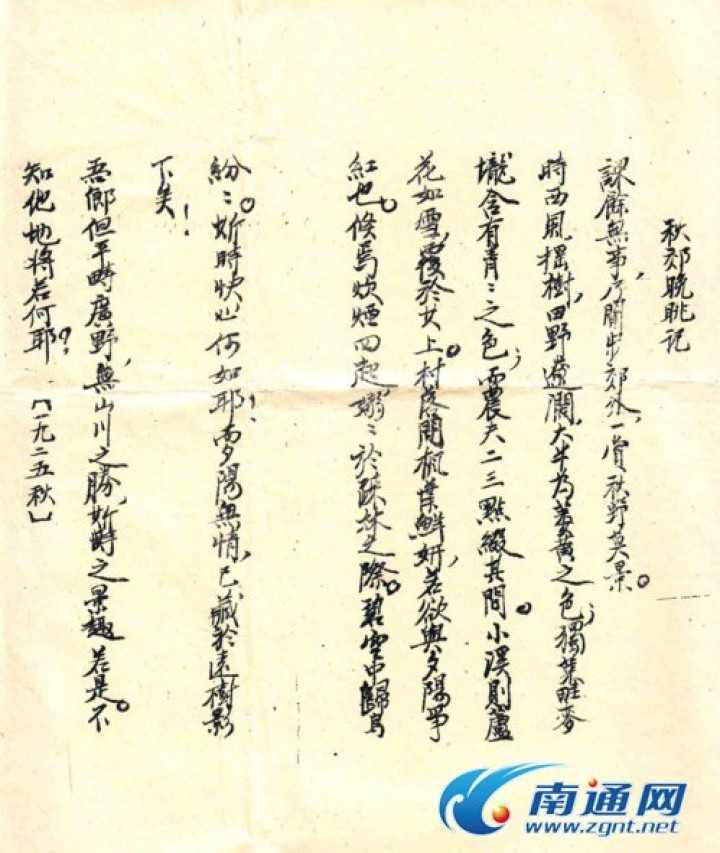 秋郊晚眺记
課餘無事，乃閒步郊外，一賞秋野美景。
時西風搖樹，田野遼闊，大半为萎黄之色；獨隻畦麥
壠含有青々之色；而農夫二三點綴其間。小溪則蘆
花如雪，覆於其上。村落間楓葉鮮妍，若欲與夕陽爭
紅也。倏焉炊煙四起，嫋々於疎林之際。碧空中歸鸟
紛々，斯時快心何如耶！夕陽無情，已藏於远樹影
下矣！
吾鄉但平疇廣野，無山川之勝，斯時之景趣若是。不
知他地将若何耶？【一九二五秋】
南通网
www.zgnt.net